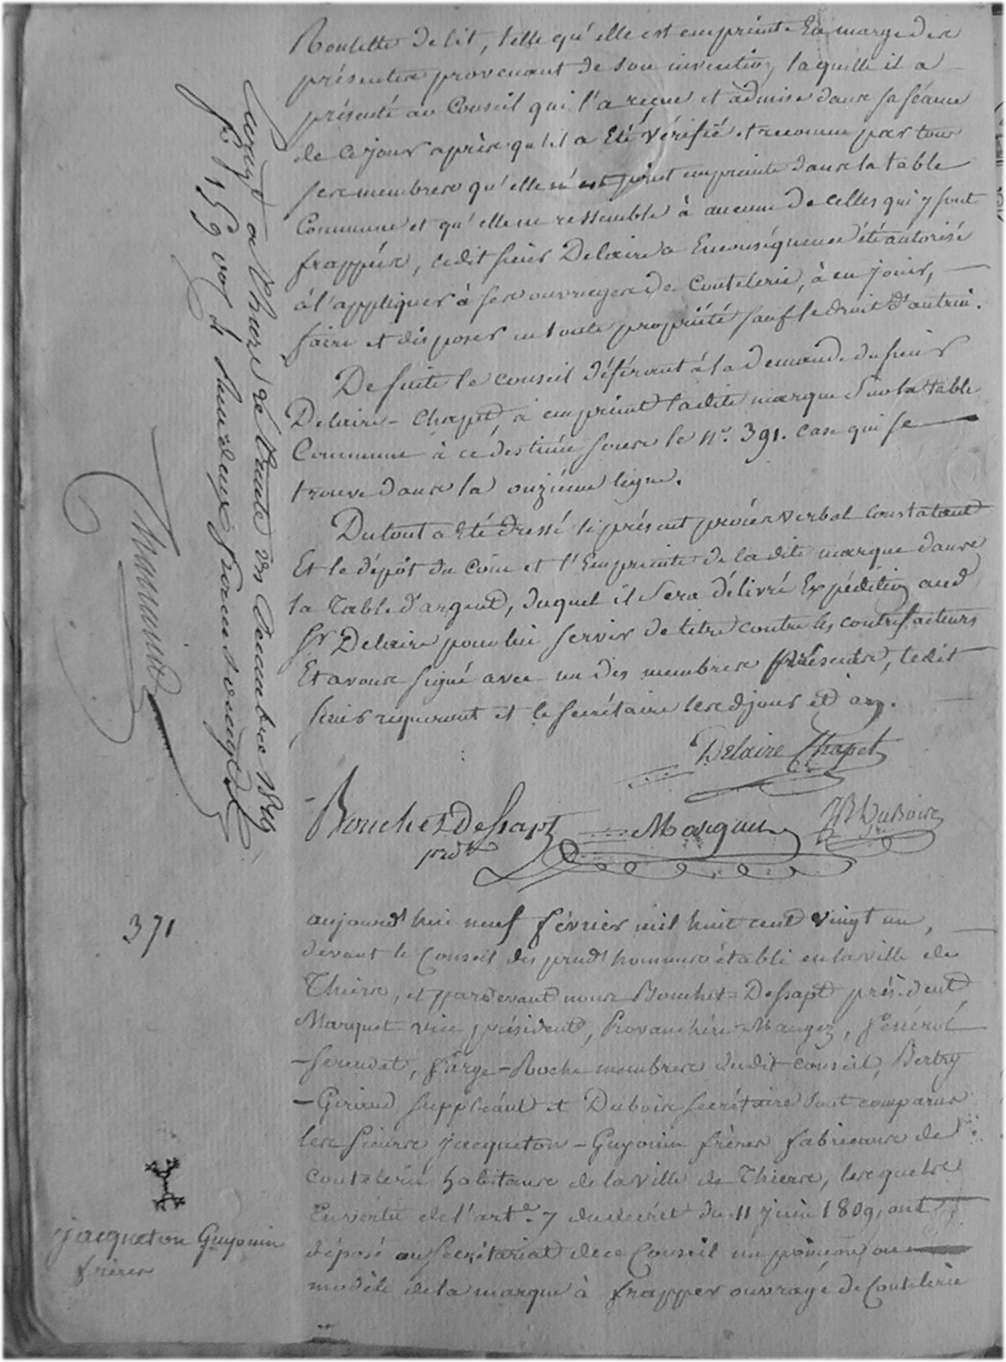 Roulette de lit, telle qu'elle est empreinte En marge des
présentes provenant de son invention, laquelle il a
présenté au Conseil qui l'a reçue et admise dans sa séance
de ce jour après qu'il a Eté vérifié et reconnu par tous
ses membres qu'elle n'est point empreinte dans la table
Commune et qu'elle ne ressemble à aucune de celles qui y sont
frappées, ledit sieur Delaire a Enconséquence été autorisé
à l'appliquer à ses ouvrages de Coutelerie, à en jouir,
faire et disposer en toute propriété sauf le droit d'autrui.
De suite le conseil déférant à la demande du sieur
Delaire - Chapet, a empreint ladite marque Sur la table
Commune à ce destinée sous le n°. 391. case qui se
trouve dans la onzième ligne.
Du tout a Eté dressé le présent procès verbal constatant
Et le dépôt du Coin et l'Empreinte de la dite marque dans
la Table d'argent, duquel il Sera délivré Expédition aud
Sr Delaire pour lui servir de titre contre les contrefacteurs
Et avons signé avec un des membres présents, ledit
sieur requérant et le secrétaire lesdjour et an.
Delaire Chapet
Bouchet Dessapt
prdt
Marquet
Dubois
Enregt a Thiers le trente un Decembre 1820
f° 159 vo.
371
aujourd'hui neuf février mil huit cent vingt un,
devant le Conseil des prud'hommes établi en la ville de
Thiers, et pardevant nous Bouchet = Dessapt président
Marquet vice président, Provanchère - Mangez, Fénérol
- Serendat, farge - Roche membres dudit conseil, Bertry
- Giraud suppléant et Dubois secrétaire Sont comparus
les sieurs jacqueton - Guyonin frères fabricans de
Coutelerie habitans de la ville de Thiers, lesquels
En vertu de l'arte. 7 du décret du 11 juin 1809, ont
déposé au Secrétariat de ce Conseil un poinçon ou
modèle de la marque à frapper ouvrage de Coutelerie
jacqueton Guyonin
frères